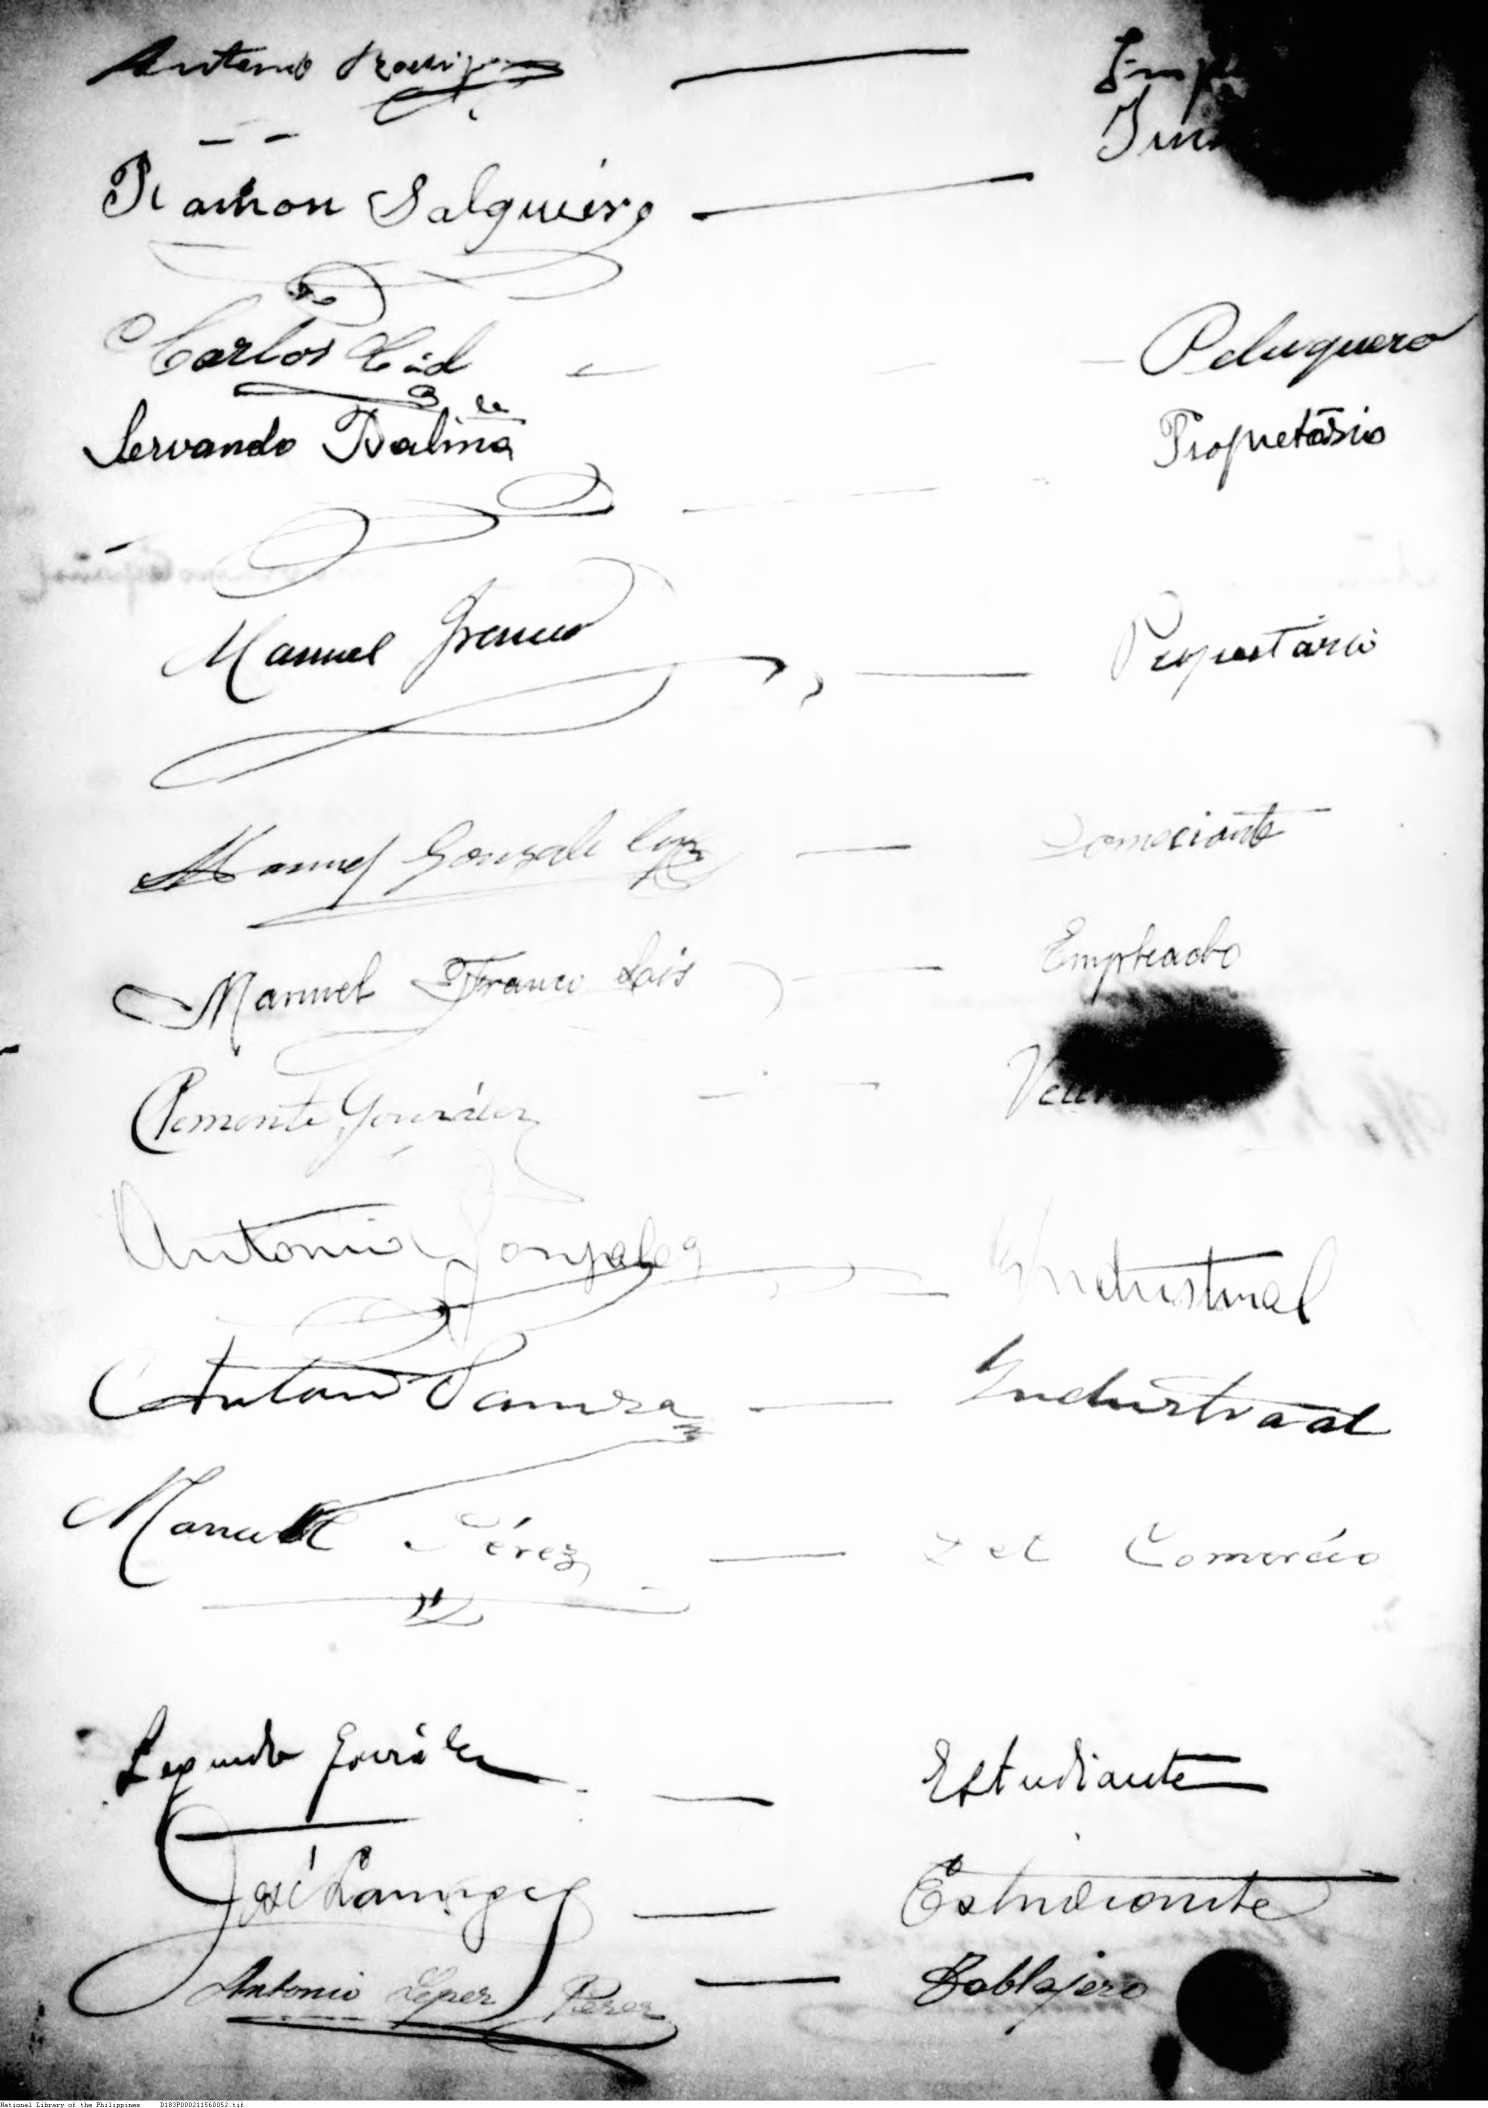 Antonio
Ramon Salgueiro
Carlos Cid Peluquero
Servando Daliña Propietário
Manuel Franco Propietario
Manuel Gonzale Comeciante
Manuel Franco Lois Empleado
Clemente González
Antonio Gonzalez Industrial
Antonio Industrial
Manuel Pérez Del Comercio
Segundo González Estudiante
José Estudiante
Antonio Lopez Perez Tablajero
National Library of the Philippines D183P000211560052.tif